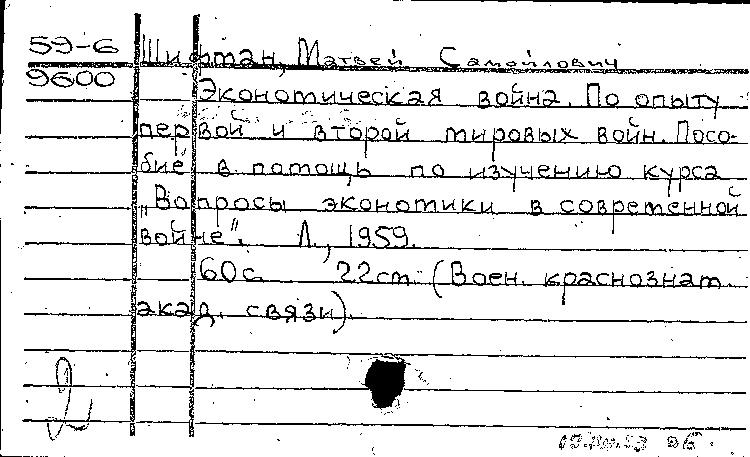 59-6 Шифтан, Матвей Самойлович
9600
Экономическая война. По опыту
первой и второй мировых войн. Посо-
бие в помощь по изучению курса
„Вопросы экономики в современной
войне". Л., 1959.
60с. 22см. (Воен. краснознам.
акад. связи).
2